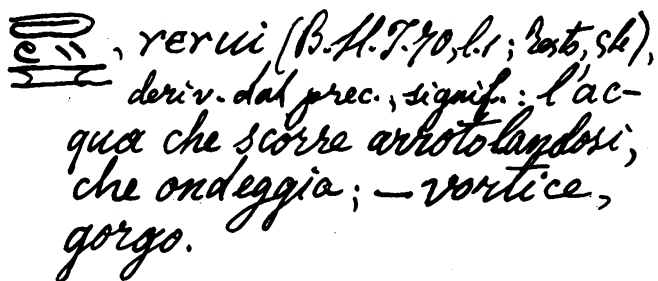 , rerui (B.H.T. 70, l. 1; Testo, 56),
deriv. dal prec., signif.: l'ac-
qua che scorre arrotolandosi,
che ondeggia; — vortice,
gorgo.